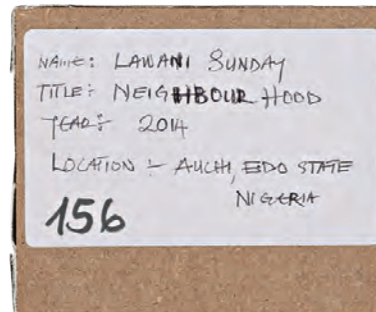 NAME: LAWANI SUNDAY
TITLE: NEIGHBOUR HOOD
YEAR: 2014
LOCATION :- AUCHI, EDO STATE
NIGERIA
156